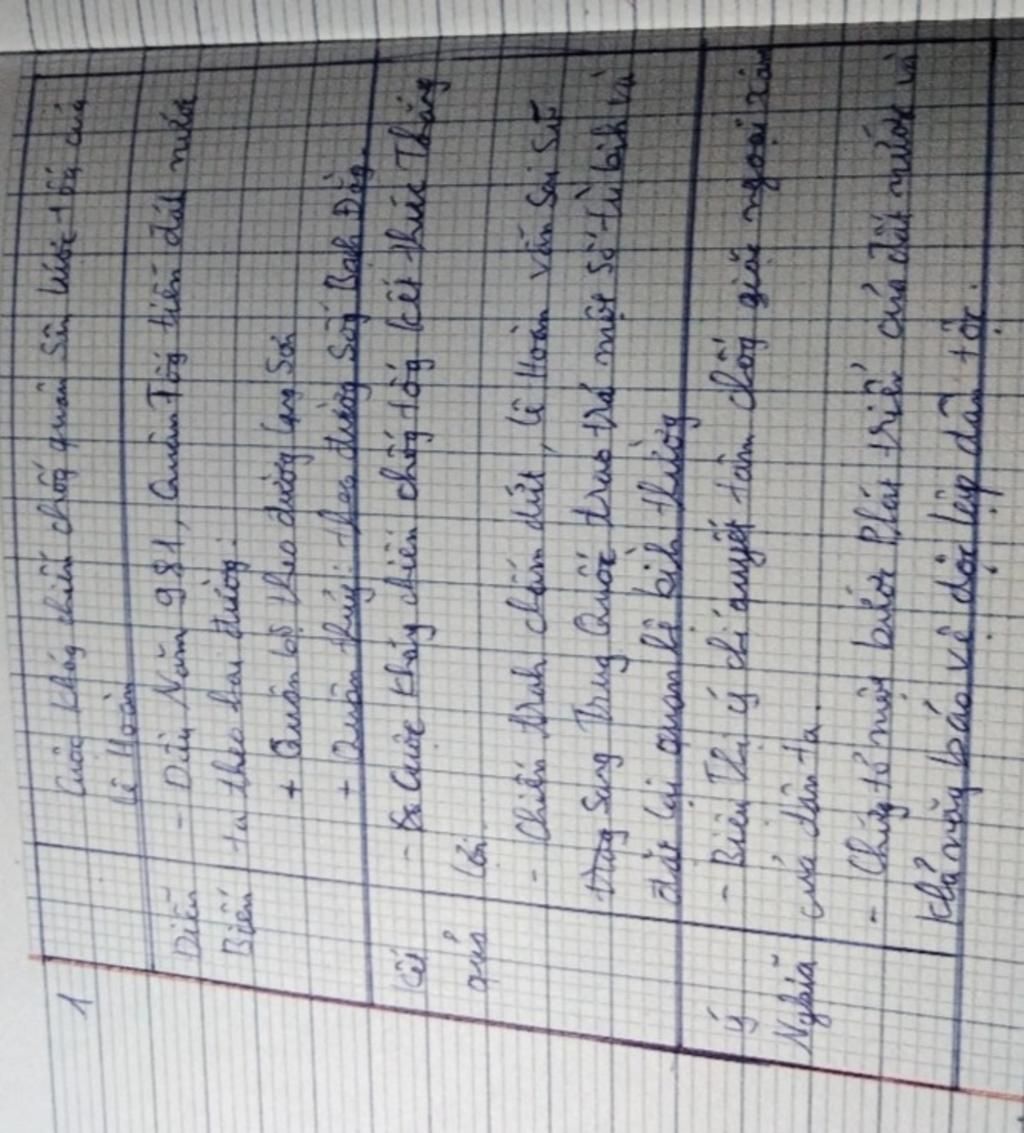 1
Cuộc khág chiến chốg quân Sân lược tốg của
lê Hoàn
Diễn - Diễn Năm 981, Quân Tốg tiến đát nước
Biến ta theo hai đường:
+ Quân bộ theo đường lạng Sơn
+ Quân thủy: theo đường Sôg Bạch Đằg.
Kết - Cuộc khág chiến chốg tốg kết thúc Thắng
quả lợi.
- Chiến tranh chấm dứt, lê Hoàn vẫn sai sứ
Sang Trung Quốc trao trả một số tù binh và
đặt lại quan hệ bình thườg
Ý - Biểu Thị ý chí quyết tâm chốg giặc ngoại xâm
Nghĩa của dân ta.
- Chứg tỏ một bước Phát triển của đất nước và
khả năng bảo vệ độc lập dân tộc.